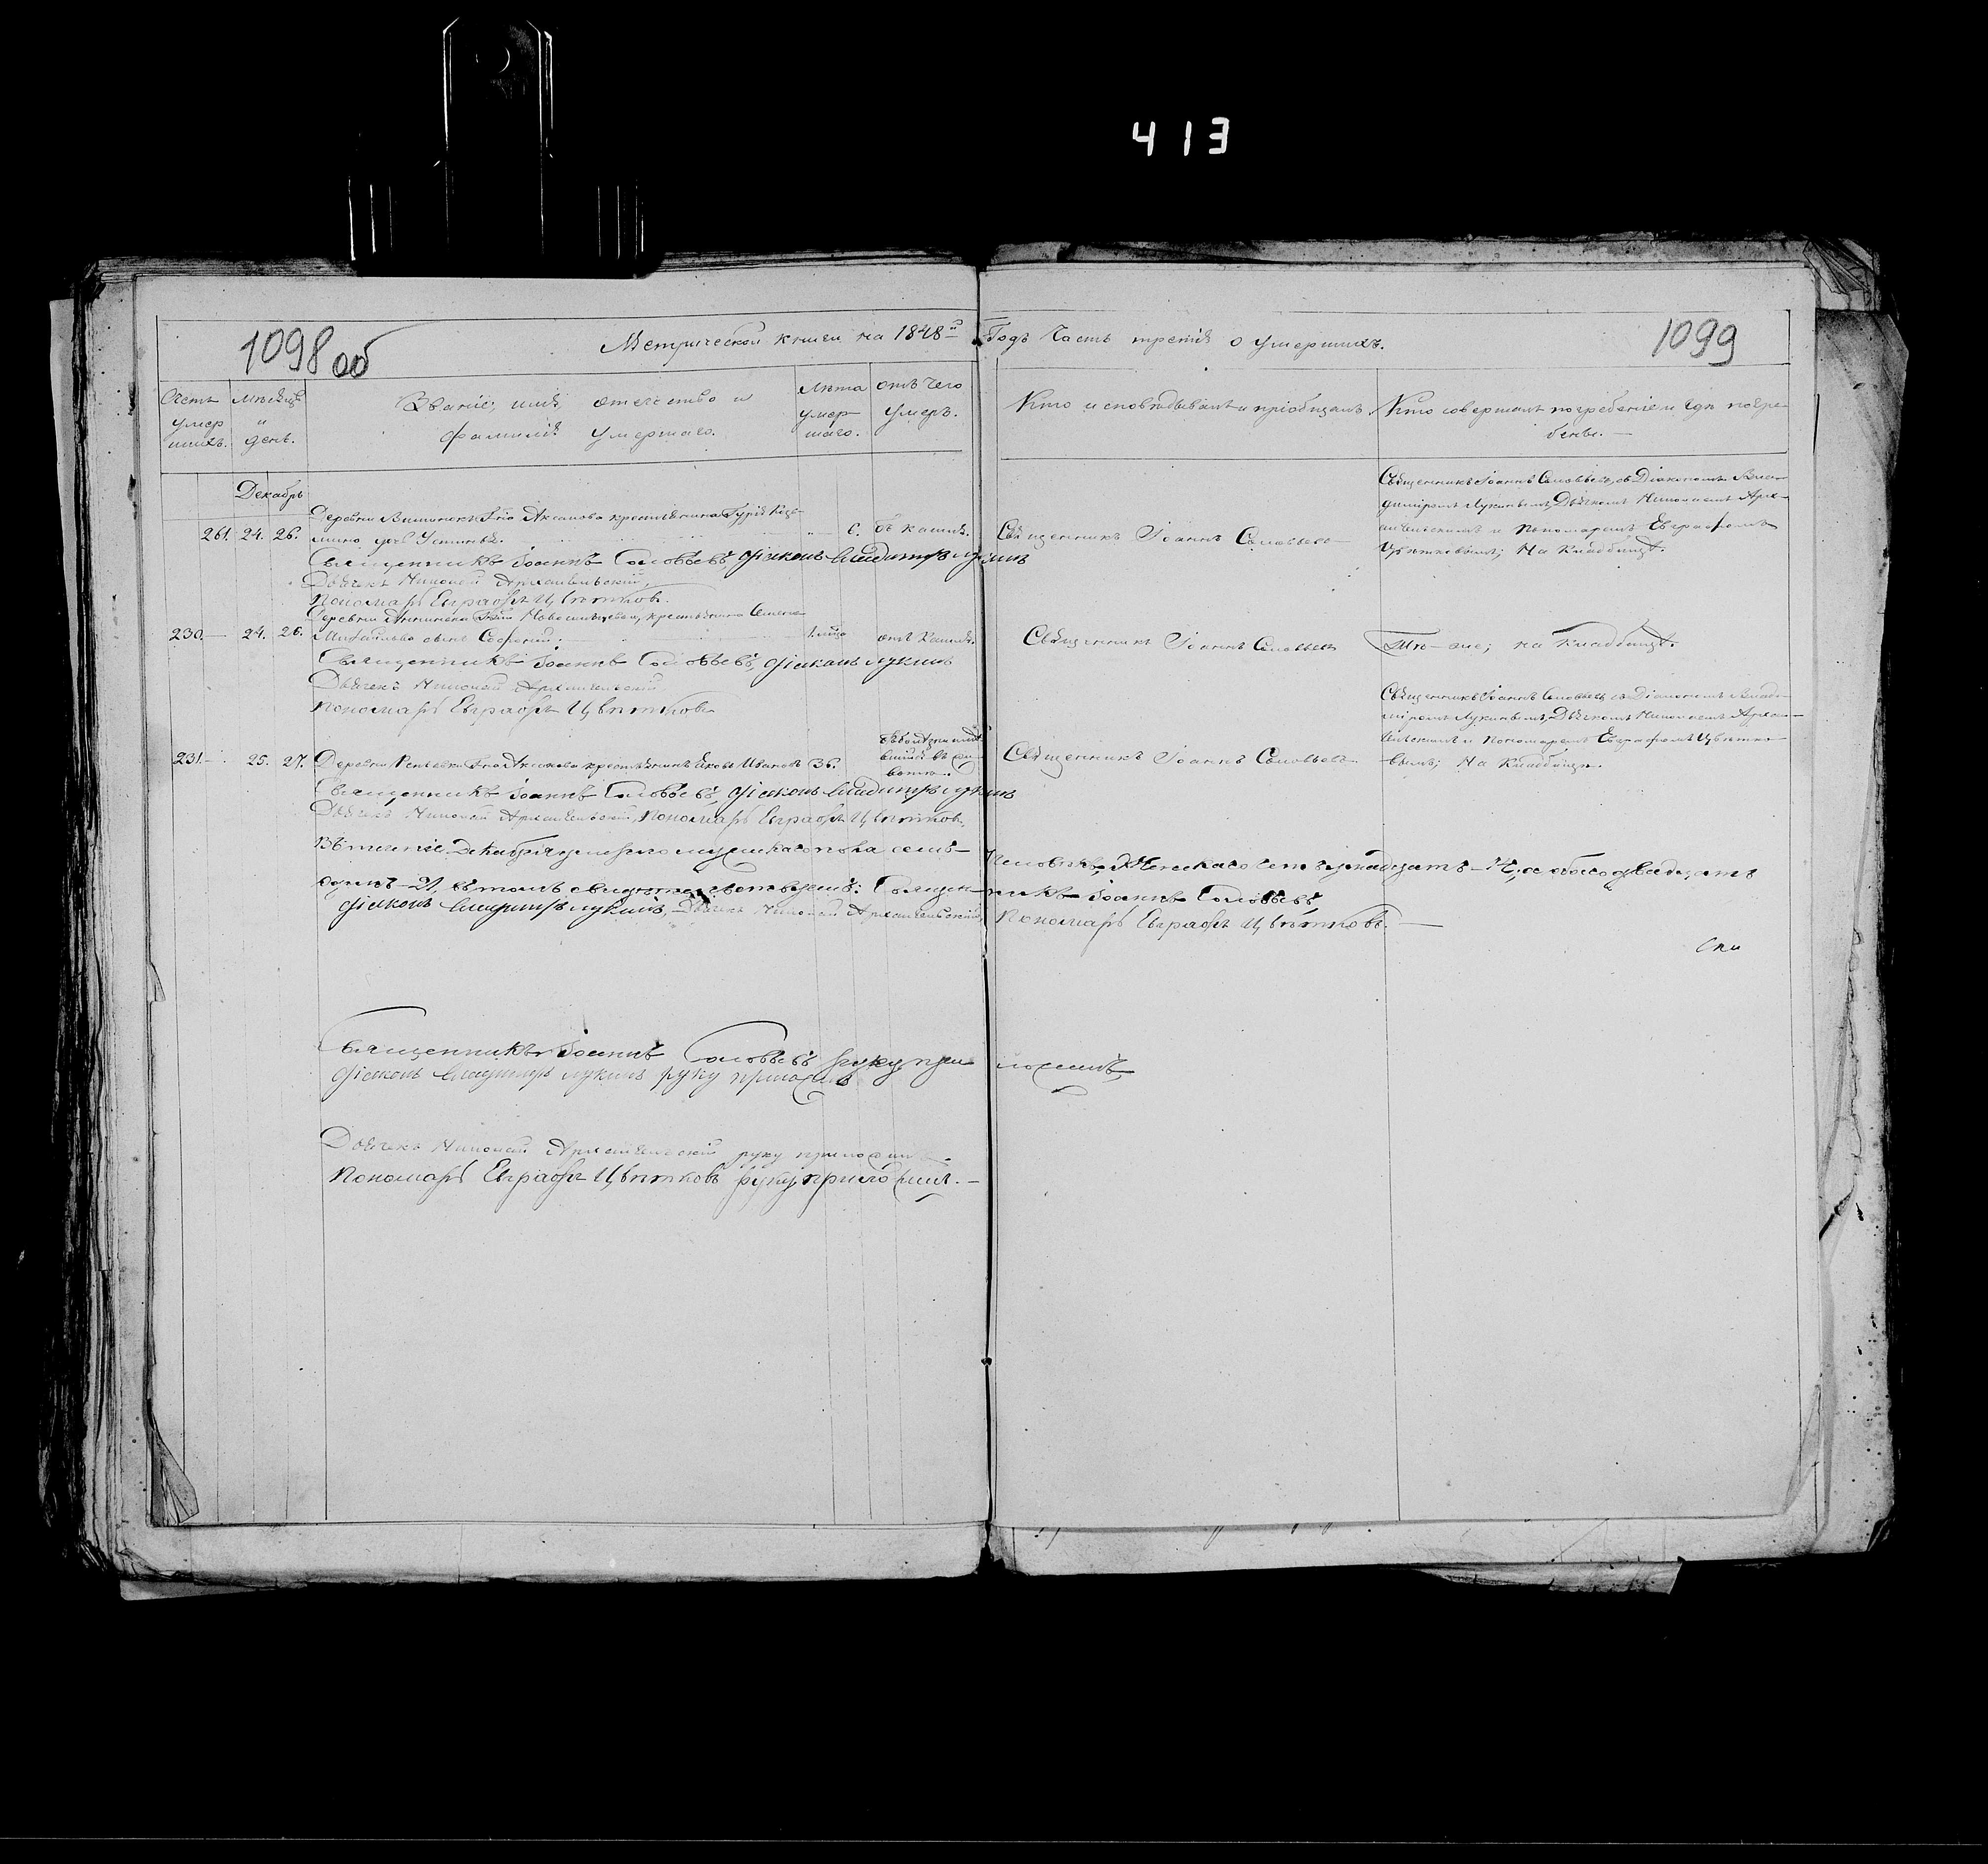 413
1098 об
Метрической книги на 1848й Годъ Часть третія о умершихъ.
1099
Счетъ умершихъ.
Мѣсяцъ и день.
Званіе, имя, отечество и фамилія умершаго.
Лѣта умершаго.
отъ чего умеръ.
Кто исповѣдывалъ и пріобщалъ.
Кто совершалъ погребеніе и гдѣ погребены. —
Декабрь
Деревни
Аксакова крестьянина Гурія
261. 24. 26.
Устинья.
6.
отъ кашля.
Священникъ Іоаннъ Соловьевъ
Священникъ Іоаннъ Соловьевъ съ Діакономъ Вла-
диміромъ Лукинымъ, Дьячкомъ Николаемъ Арха-
нгельскимъ и Пономаремъ Евграфомъ
Цвѣтковымъ; На Кладбищѣ.
Священникъ Іоаннъ Соловьевъ, Діаконъ Владиміръ Лукинъ
Дьячекъ Николай Архангельскій,
Пономарь Евграфъ Цвѣтковъ.
Деревни Аннинска Гжи Новосильцевой, крестьянина Семена
230.— 24. 26. Михайлова сынъ Софроній.
1 мѣс
отъ Кашля.
Священникъ Іоаннъ Соловьевъ
Тѣ-же; на Кладбищѣ.
Священникъ Іоаннъ Соловьевъ, Діаконъ Лукинъ
Дьячекъ Николай Архангельскій
Пономарь Евграфъ Цвѣтковъ
231.— 25. 27. Деревни
Аксакова крестьянинъ Яковъ Ивановъ 36.
Священникъ Іоаннъ Соловьевъ
Священникъ Іоаннъ Соловьевъ съ Діакономъ Влади-
міромъ Лукинымъ, Дьячкомъ Николаемъ Архан-
гельскимъ и Пономаремъ Евграфомъ Цвѣтко-
вымъ; На Кладбищѣ.
Священникъ Іоаннъ Соловьевъ, Діаконъ Владиміръ Лукинъ
Дьячекъ Николай Архангельскій, Пономарь Евграфъ Цвѣтковъ.
Въ теченіе Декабря умерло мужескаго пола семь человѣкъ, Женскаго четырнадцать — 14, а обоего двадцать
одинъ — 21, въ томъ свидѣтельствуемъ: Священникъ Іоаннъ Соловьевъ
Діаконъ Владиміръ Лукинъ, Дьячекъ Николай Архангельскій, Пономарь Евграфъ Цвѣтковъ. —
Священникъ Іоаннъ Соловьевъ руку приложилъ
Діаконъ Владиміръ Лукинъ руку приложилъ
Дьячекъ Николай Архангельскій руку приложилъ.
Пономарь Евграфъ Цвѣтковъ руку приложилъ. —